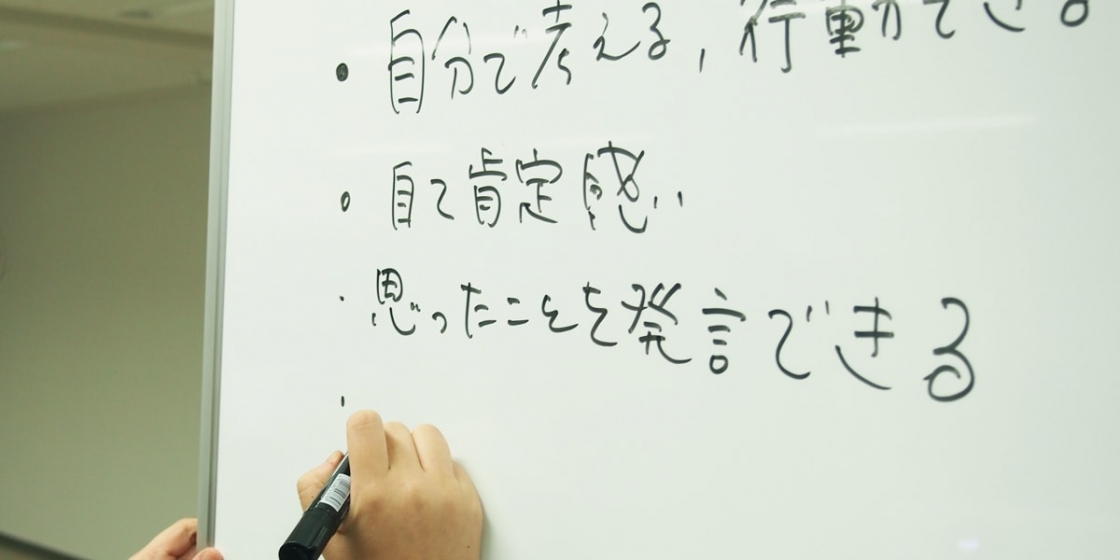 ・自分で考える,行動ができる
・自て肯定感
・思ったことを発言できる
・